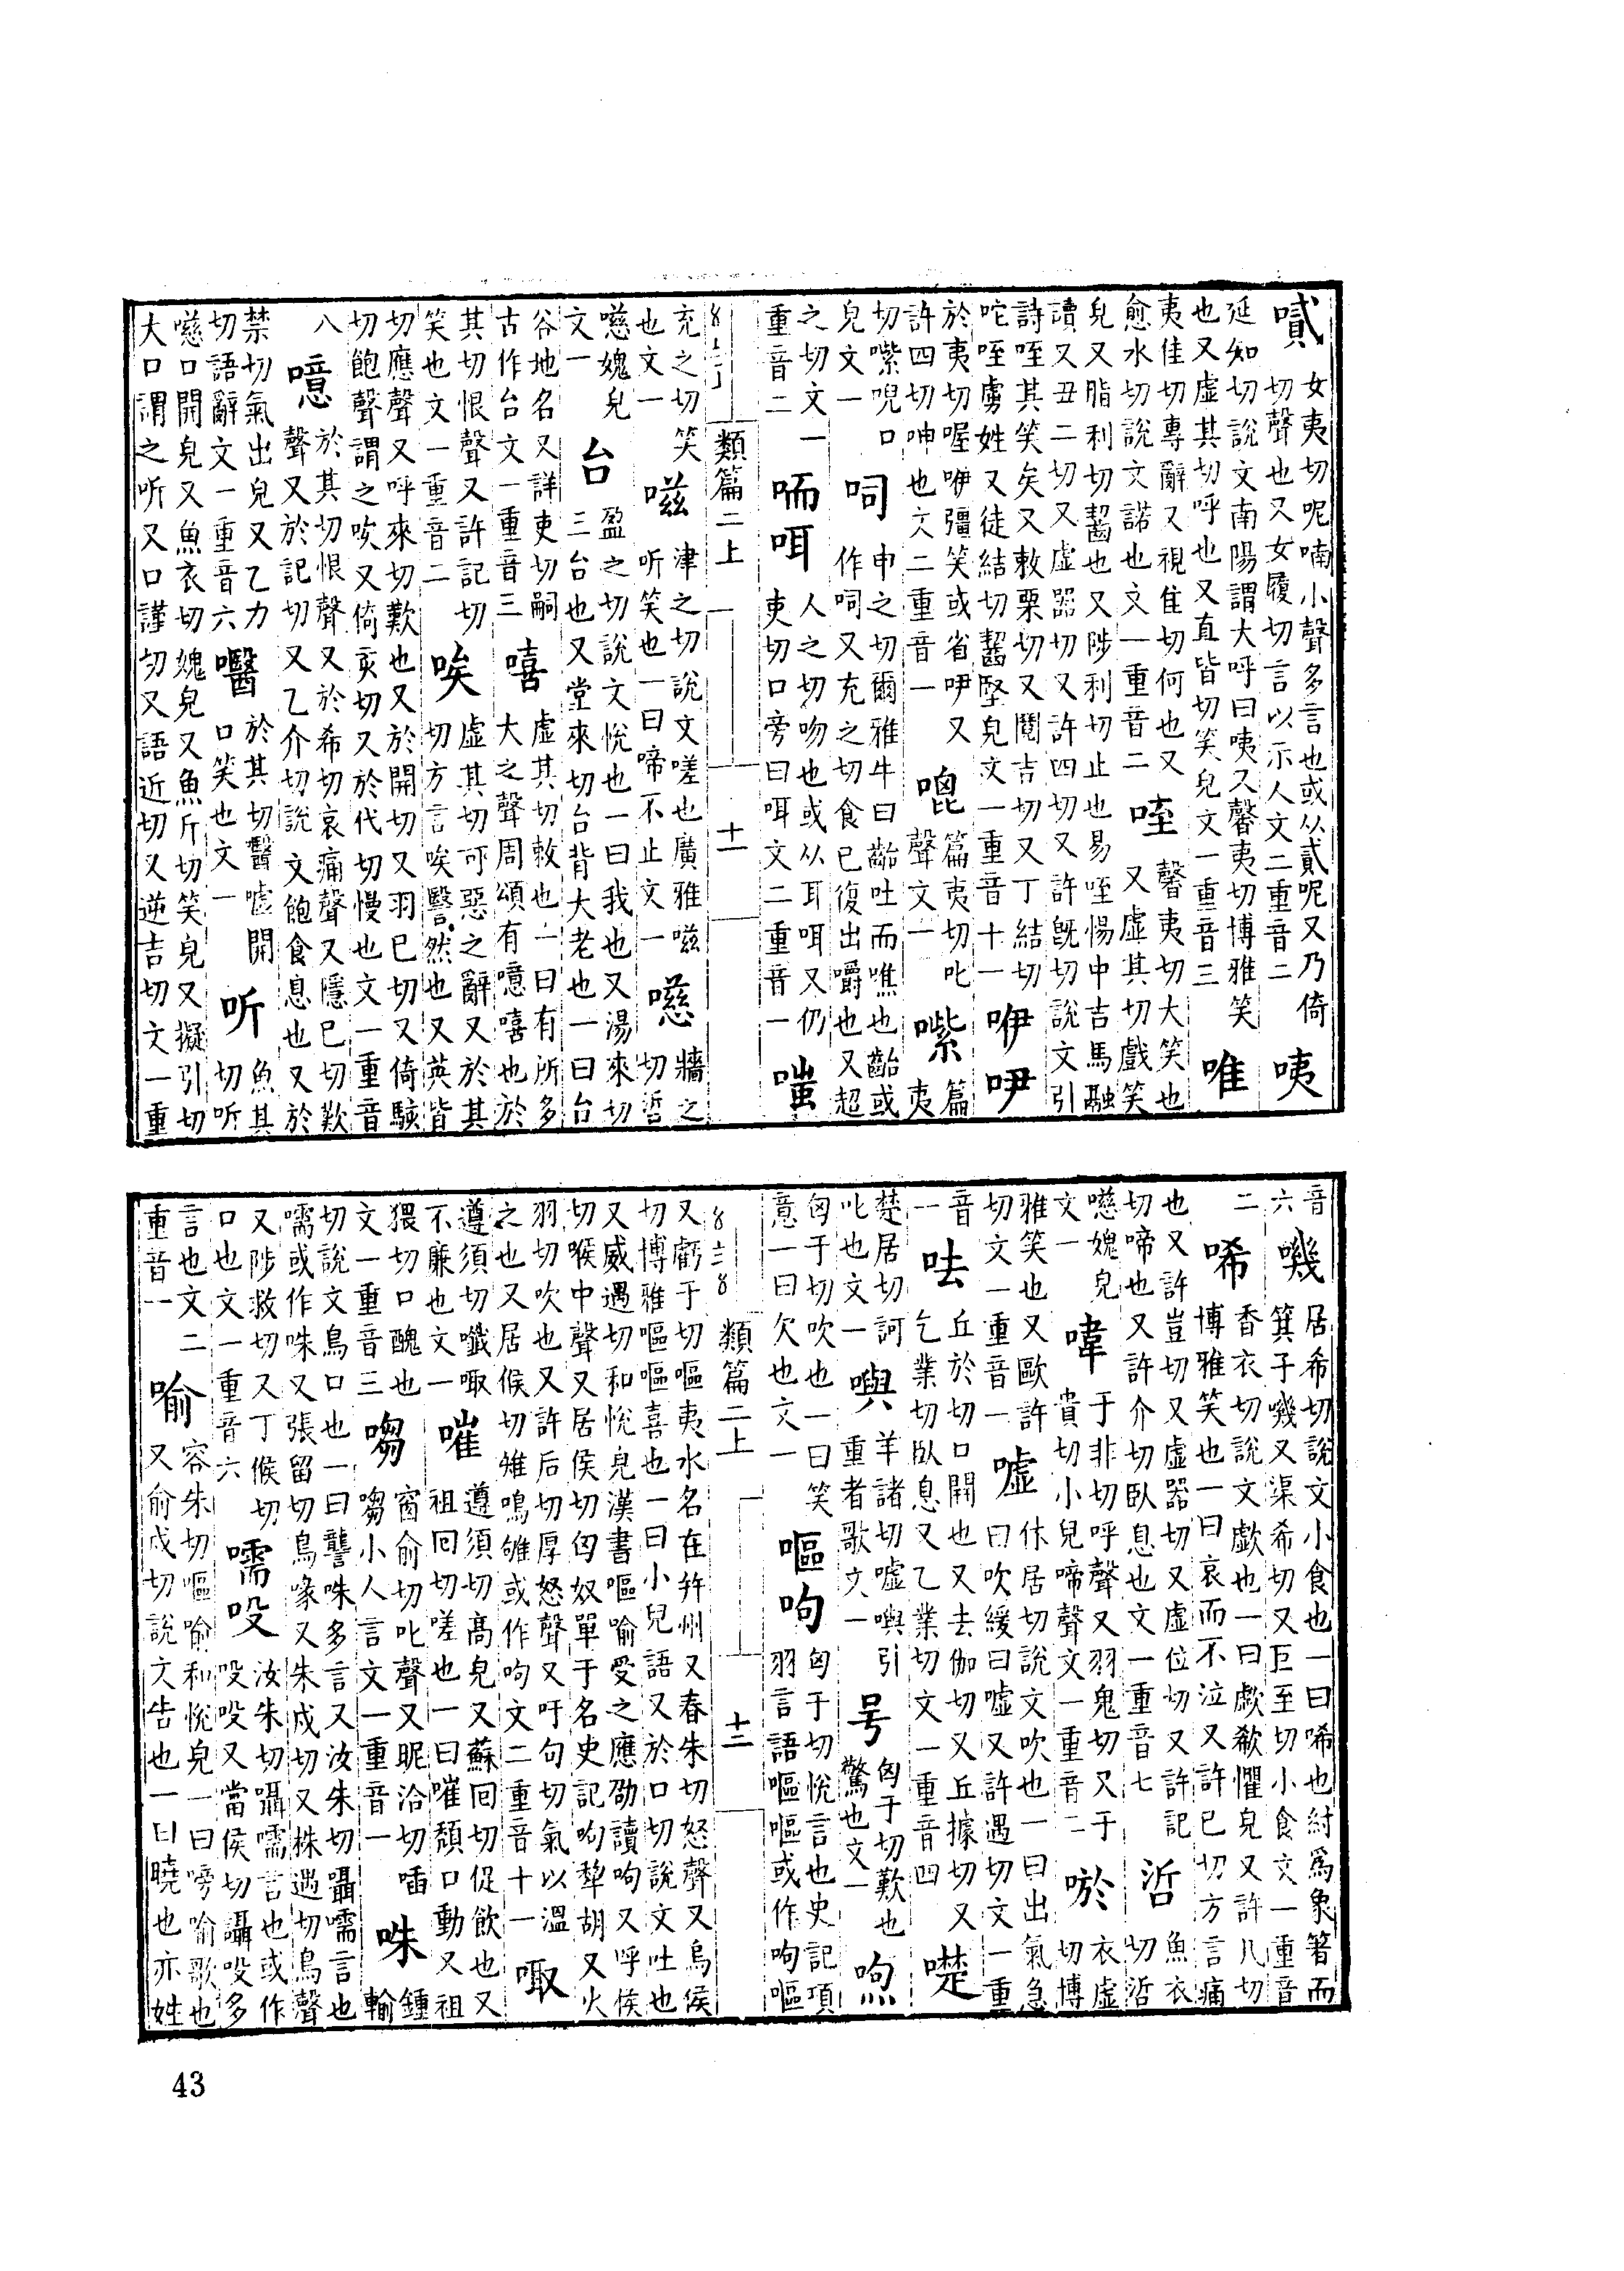 女夷切呢喃小聲多言也或从貳呢又乃倚
切聲也又女履切言以示人文二重音二
咦
延知切說文南陽謂大呼曰咦又馨夷切博雅笑
也又虛其切呼也又直皆切笑皃文一重音三
唯
夷佳切專辭又視隹切何也又
愈水切說文諾也文一重音二
咥
馨夷切大笑也
又虛其切戲笑
皃又脂利切齧也又陟利切止也易咥惕中吉馬融
讀又丑二切又虛器切又許四切又許旣切說文引
詩咥其笑矣又敕栗切又閱吉切又丁結切
咜咥虜姓又徒結切齧堅皃文一重音十一
咿吚
於夷切喔咿彊笑或省吚又
許四切呻也文二重音一
篇夷切叱
聲文一
篇
夷
切唲口
皃文一
呞
申之切爾雅牛曰齝吐而噍也齝或
作呞又充之切食已復出嚼也又超
之切文一
重音二
咡
人之切吻也或从耳咡又仍
吏切口旁曰咡文二重音一
嗤
類篇二上 十一
充之切笑
也文一
嗞
津之切說文嗟也廣雅嗞
听笑也一曰啼不止文一
牆之
切唽
媿皃
文一
台
盈之切說文悅也一曰我也又湯來切
三台也又堂來切台背大老也一曰台
谷地名又詳吏切嗣
古作台文一重音三
嘻
虛其切敕也一曰有所多
大之聲周頌有噫嘻也於
其切恨聲又許記切
笑也文一重音二
唉
虛其切可惡之辭又於其
切方言唉然也又英皆
切應聲又呼來切歎也又於開切又羽已切又倚駭
切飽聲謂之唉又倚亥切又於代切慢也文一重音
八
噫
於其切恨聲又於希切哀痛聲又隱已切歎
聲又於記切又乙介切說文飽食息也又於
禁切氣出皃又乙力
切語辭文一重音六
於其切嘘開
口笑也文一
听
魚其
切听
口開皃又魚衣切媿皃又魚斤切笑皃又擬引切
大口謂之听又口謹切又語近切又逆吉切文一重
音
六
嘰
居希切說文小食也一曰唏也紂爲象箸而
箕子嘰又渠希切又巨至切小食文一重音
二
唏
香衣切說文歔也一曰歔欷懼皃又許几切
博雅笑也一曰哀而不泣又許已切方言痛
也又許豈切又虛器切又虛位切又許記
切啼也又許介切臥息也文一重音七
唽
魚衣
切唽
媿皃
文一
喡
于非切呼聲又羽鬼切又于
貴切小兒啼聲文一重音二
唹
衣虛
切博
雅笑也又歐許
切文一重音一
噓
休居切說文吹也一曰出氣急
曰吹緩曰噓又許遇切文一重
音
一
呿
丘於切口開也又去伽切又丘據切又
乞業切臥息又乙業切文一重音四
楚居切訶
叱也文一
羊諸切噓引
重者歌文一
匈于切歎也
驚也文一
匈于切吹也一曰笑
意一曰欠也文一
嘔呴
匈于切悅言也史記項
羽言語嘔嘔或作呴嘔
類篇二上 十三
又虧于切嘔夷水名在幷州又春朱切怒聲又烏侯
切博雅嘔嘔喜也一曰小兒語又於口切說文吐也
又威遇切和悅皃漢書嘔喻受之應劭讀呴又呼侯
切喉中聲又居侯切匈奴單于名史記呴犂胡又火
羽切吹也又許后切厚怒聲又吁句切氣以溫
之也又居候切雉鳴雊或作呴文二重音十一
㖩
遵須切孅㖩
不廉也文一
嗺
遵須切高皃又蘇回切促飲也又
祖回切嗟也一曰嗺頹口動又祖
猥切口醜也
文一重音三
㗙
窗俞切叱聲又昵洽切
小人言文一重音一
咮
鍾
輸
切說文鳥口也一曰讋咮多言又汝朱切囁嚅言也
嚅或作咮又張留切鳥喙又朱戍切又株遇切鳥聲
又陟救切又丁候切
口也文一重音六
嚅
汝朱切囁嚅言也或作
又當侯切囁多
言也文二
重音一
喻
容朱切嘔喻和悅皃一曰嗙喻歌也
又俞戍切說文告也一曰曉也亦姓
43